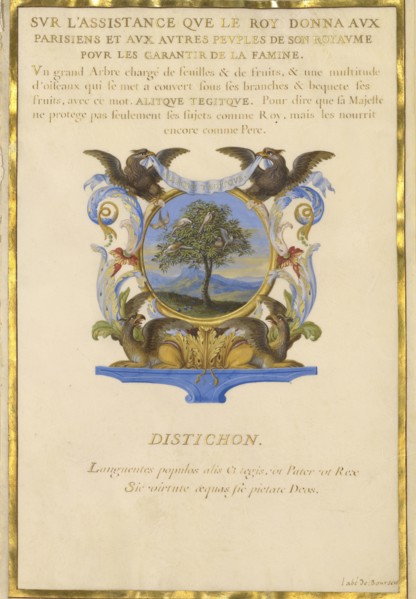 SVR L'ASSISTANCE QVE LE ROY DONNA AVX
PARISIENS ET AVX AVTRES PEVPLES DE SON ROYAVME
POVR LES GARANTIR DE LA FAMINE.
Vn grand Arbre chargé de feuilles & de fruits, & une multitude
d'oiseaux qui se met a couvert sous ses branches & bequete ses
fruits, avec ce mot. ALITQVE TEGITQVE. Pour dire que sa Majesté
ne protege pas seulement ses sujets comme Roy, mais les nourrit
encore comme Pere.
DISTICHON.
Languentes populos alis Et tegis, vt Pater vt Rex
Sic virtute æquas sic pietate Deos.